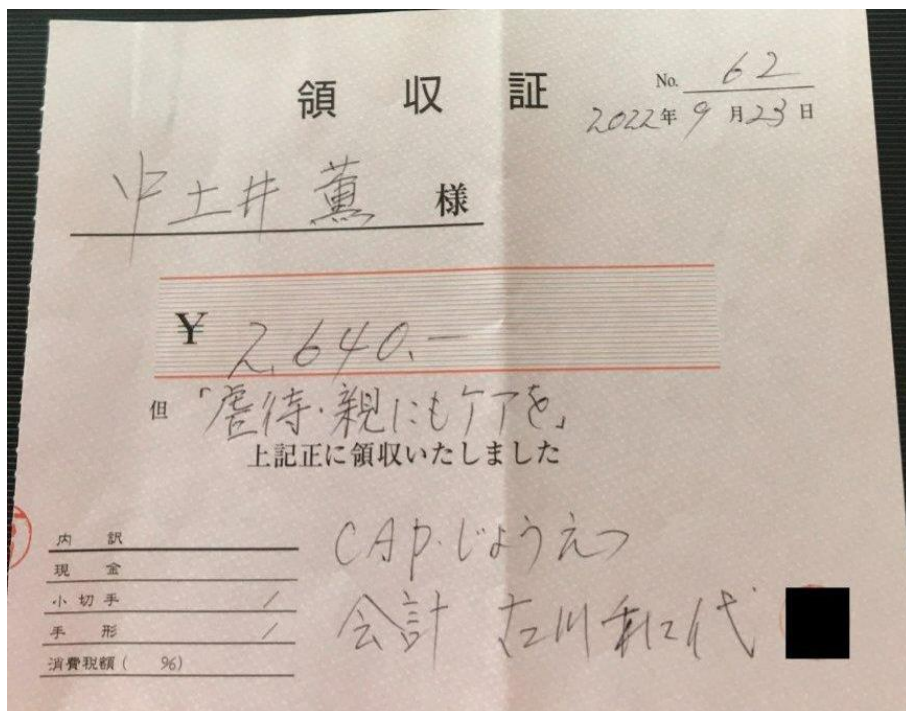 領収証
No. 62
2022年 9月23日
中土井 薫 様
¥ 2,640.—
但 「虐待・親にもケアを」
上記正に領収いたしました
内訳
現金
小切手 /
手形 /
消費税額( %)
CAP・じょうえつ
会計 古川和代